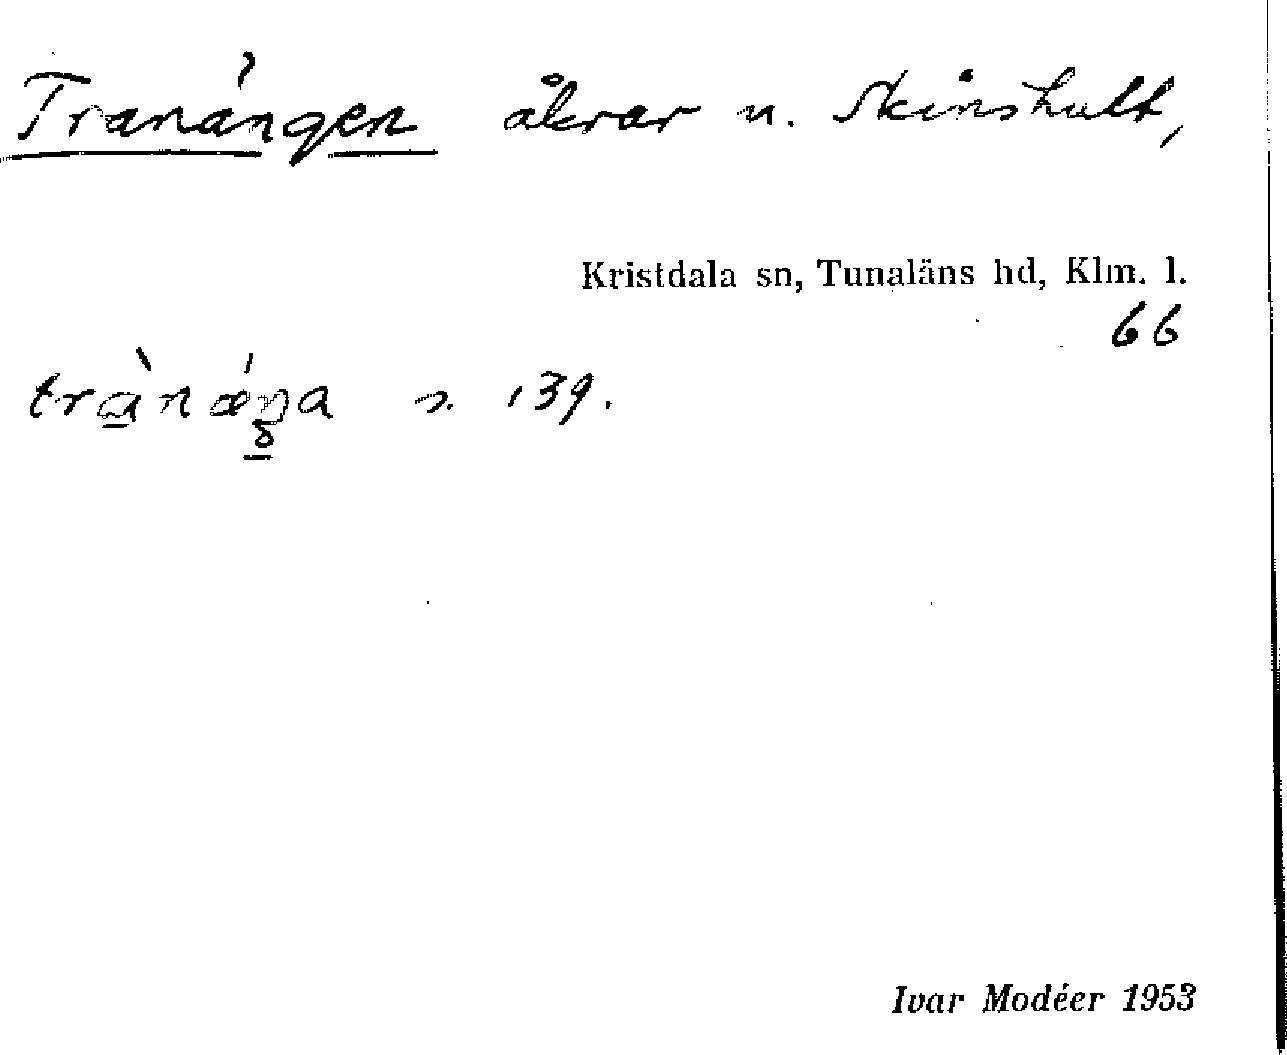 Tranängen åkrar u. Skinshult,
Kristdala sn, Tunaläns hd, Klm. l.
66
s. 139.
Ivar Modéer 1953